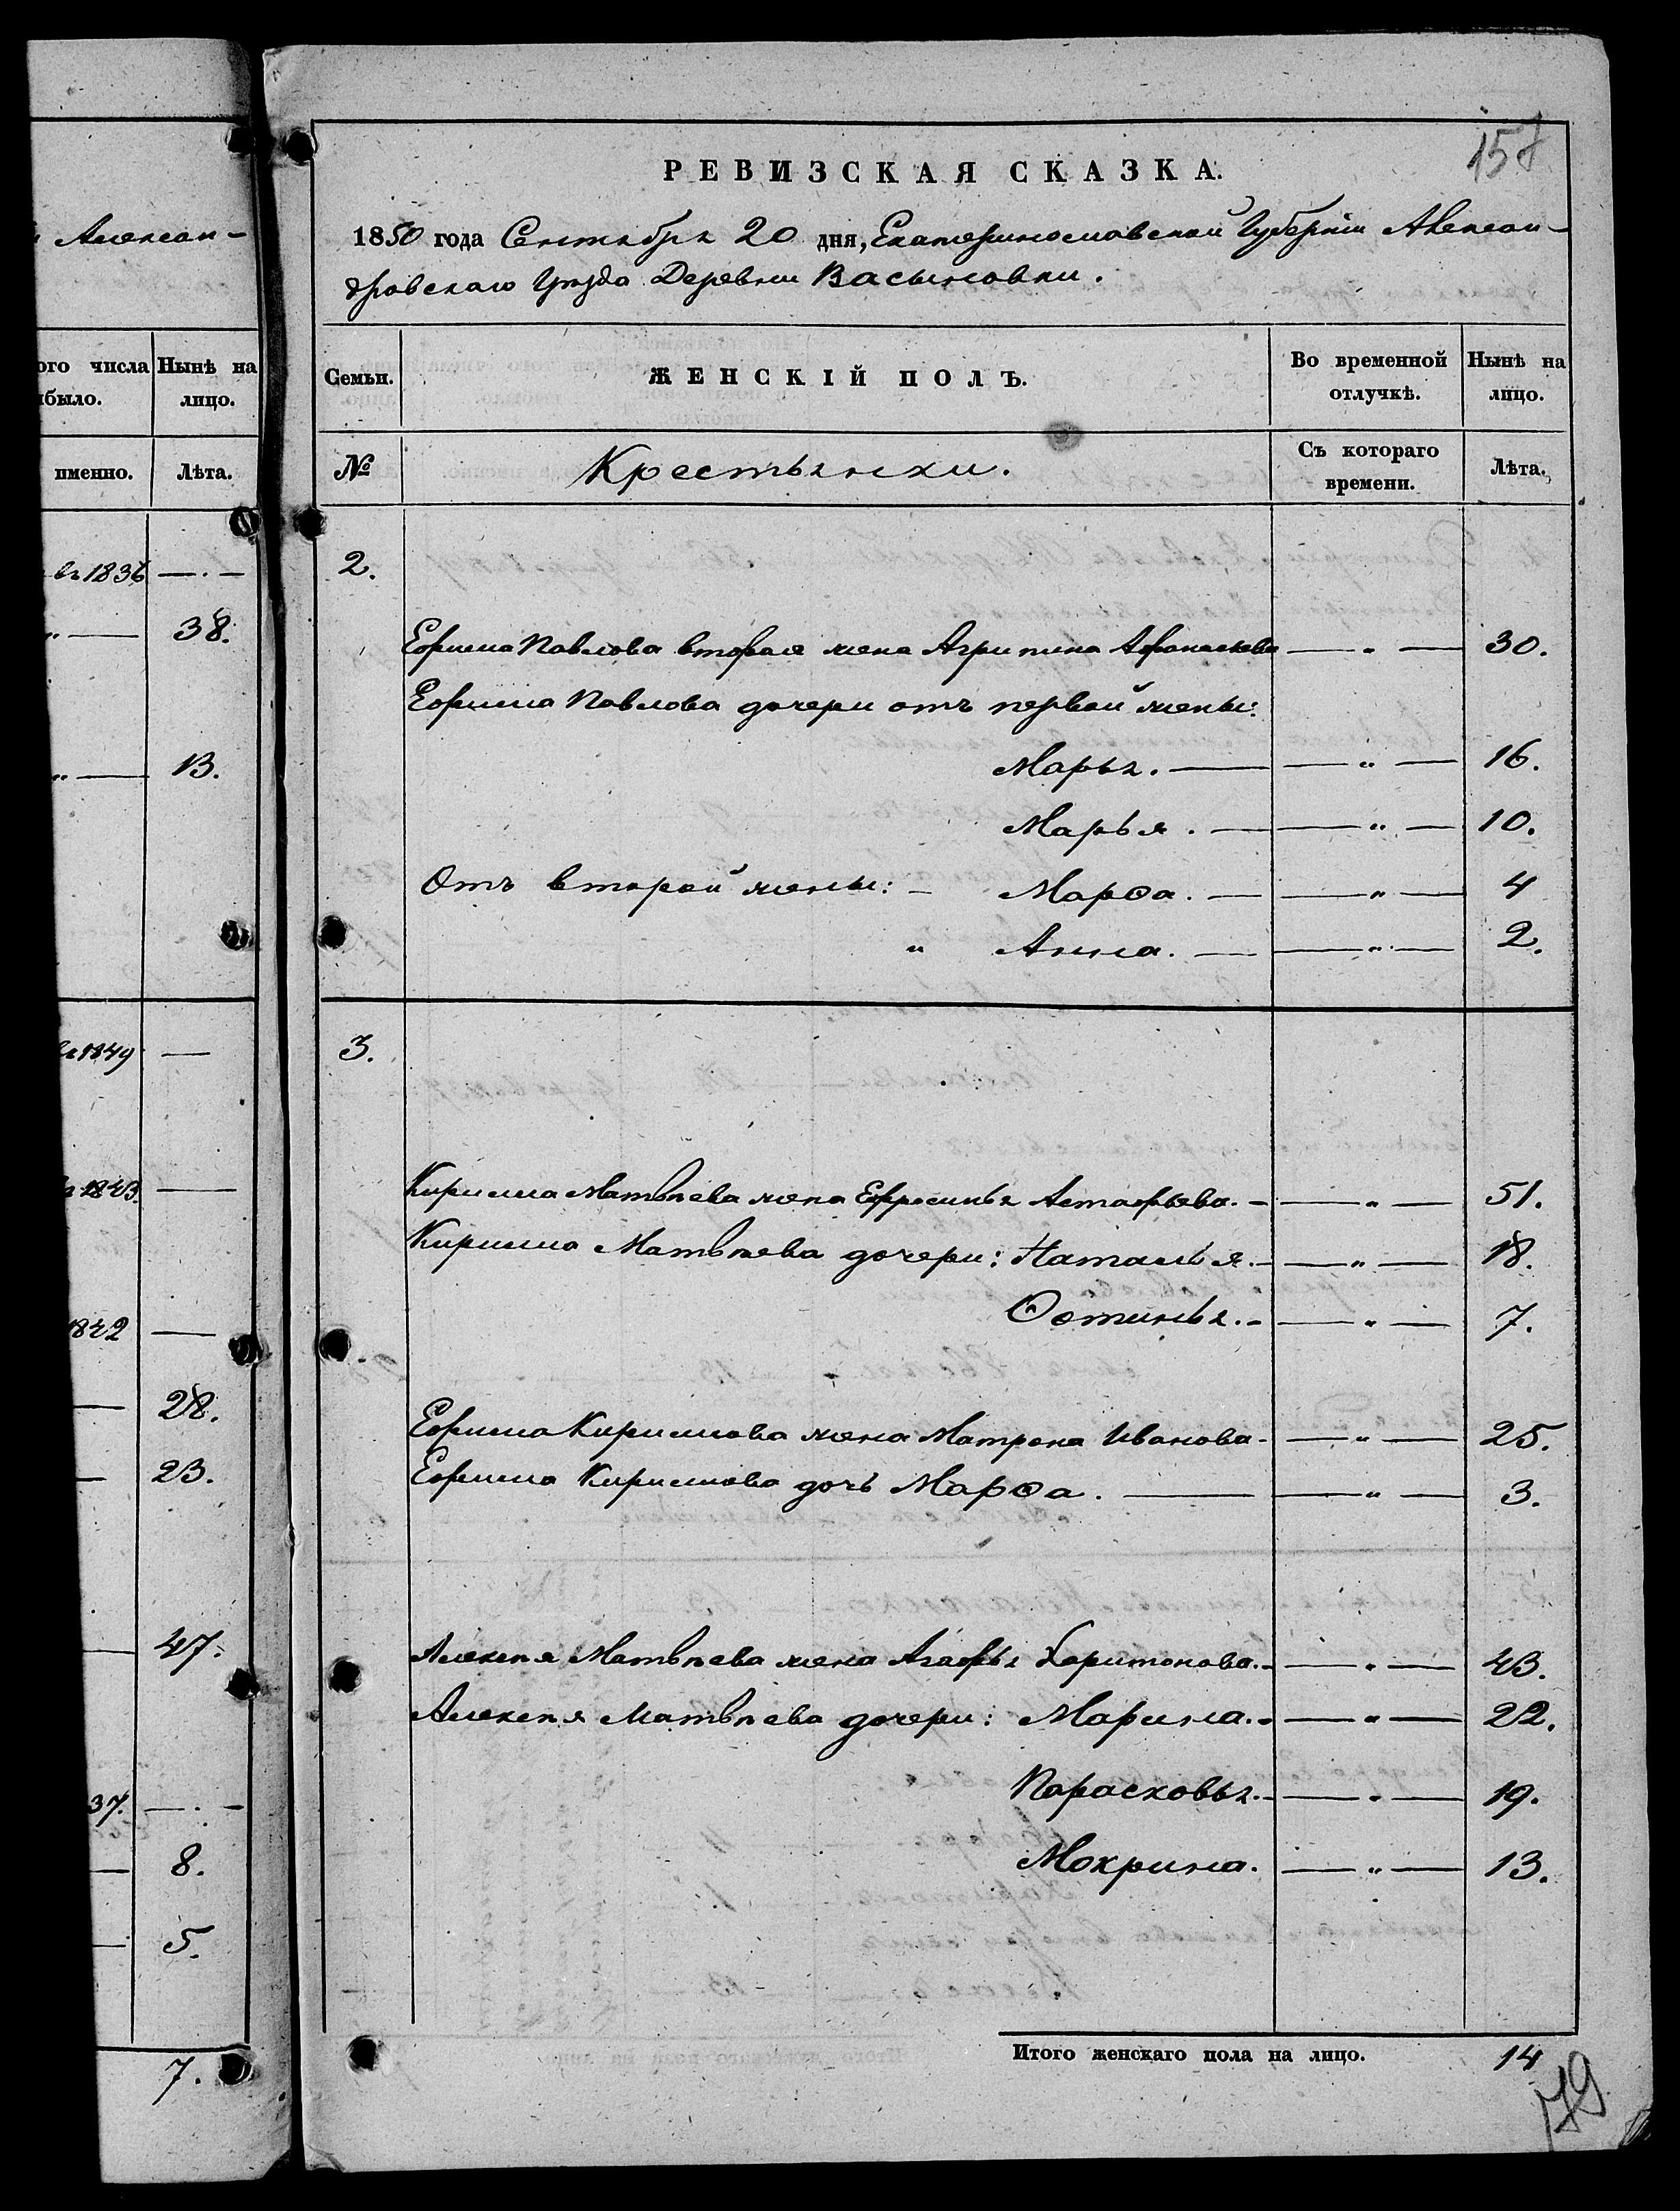 Алексан-
ого числа
было.
Нынѣ на
лицо.
именно.
Лѣта.
въ 1836 — . —
" — 38.
" — 13.
въ 1849 —
1843. —
1842 —
— 28.
— 23.
— 47.
37. — . —
— 8.
— 5.
7.
РЕВИЗСКАЯ СКАЗКА.
1850 года Сентября 20 дня, Екатеринославской Губерніи Алексан-
дровскаго Уѣзда Деревни Васыновки.
Семьи.
ЖЕНСКІЙ ПОЛЪ.
Во временной
отлучкѣ.
Нынѣ на
лицо.
№
Крестьянки.
Съ котораго
времени.
Лѣта.
2.
Ефима Павлова вторая жена Агрипина Афанасьева — " — 30.
Ефима Павлова дочери отъ первой жены:
Марья. — — " — 16.
Марья. — — " — 10.
Отъ второй жены: — Марѳа. — — " — 4
" Анна. — — " — 2.
3.
Кирила Матвѣева жена Ефросинья Астафьева. — — " — 51.
Кирила Матвѣева дочери: Наталья. — — " — 18.
Ѳотинья. — — " — 7.
Ефима Кирилова жена Матрена Иванова — — " — 25.
Ефима Кирилова дочь Марѳа. — — " — 3.
Алексѣя Матвѣева жена Агафья Харитонова. — — " — 43.
Алексѣя Матвѣева дочери: Марина. — — " — 22.
Парасковья. — — " — 19.
Мокрина. — " — 13.
Итого женскаго пола на лицо. 14
179